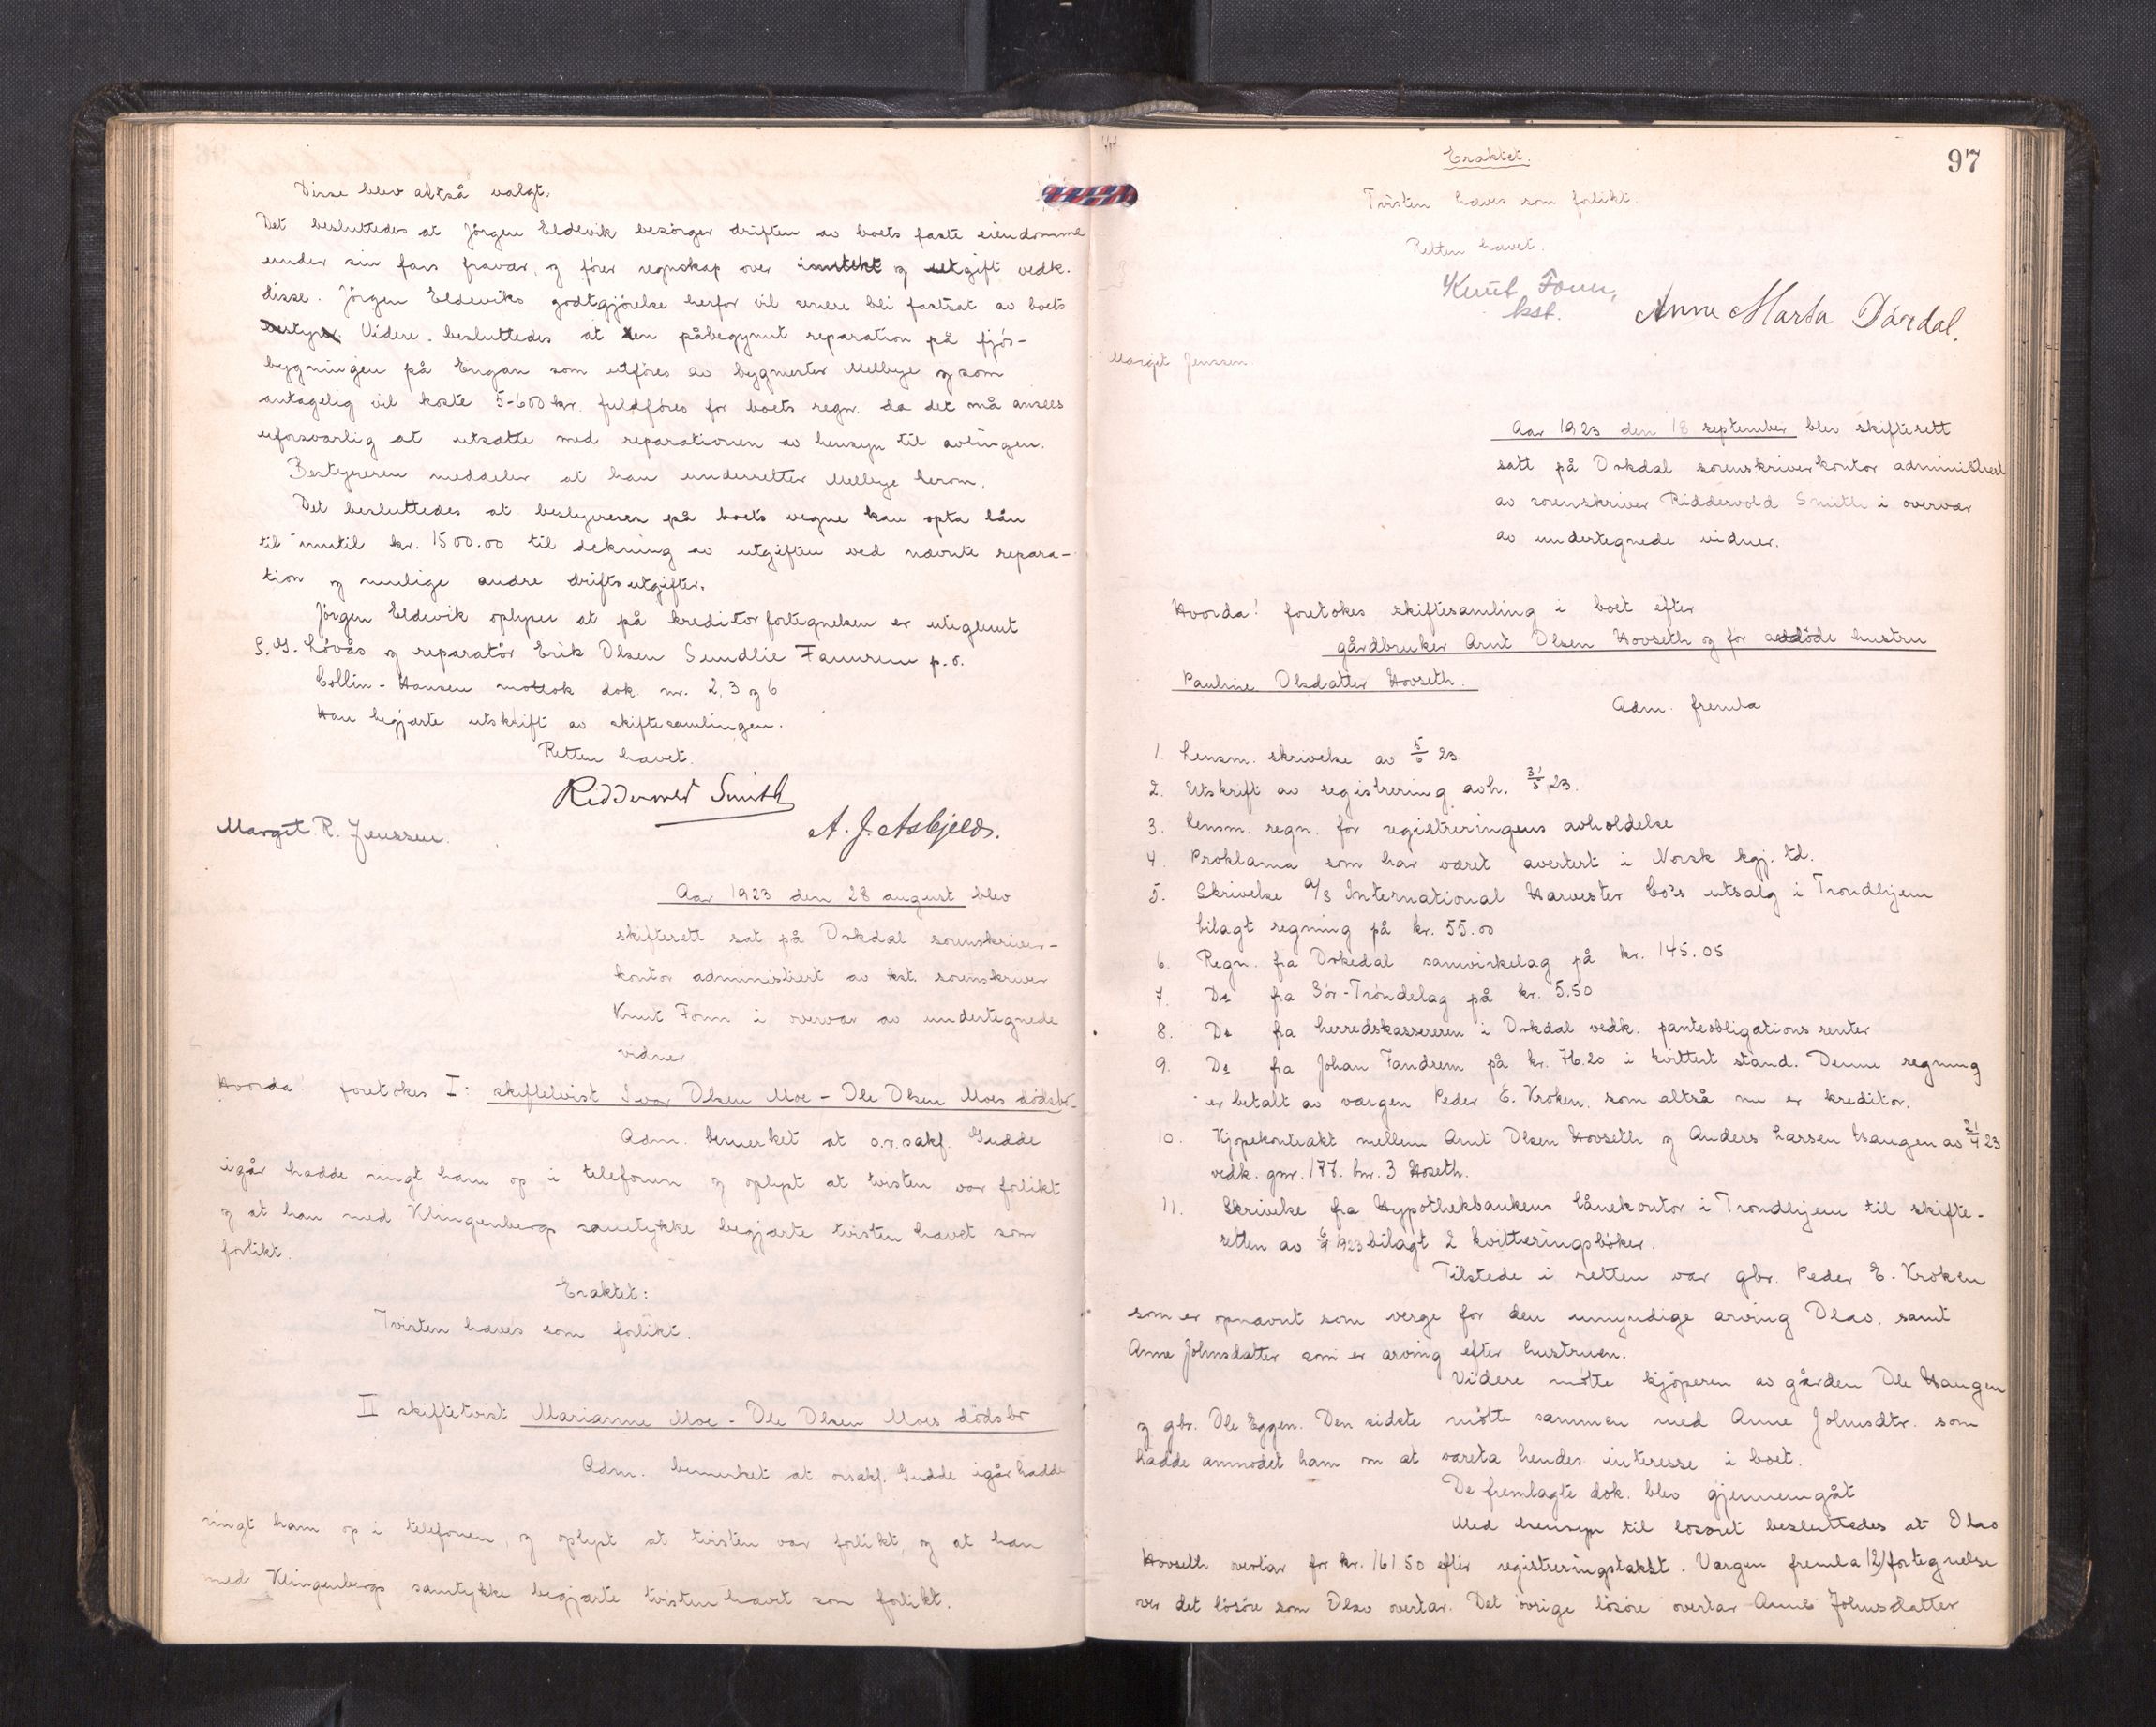 Disse blev altså valgt.
Det besluttedes at Jörgen Eldevik besörger driften av boets faste eiendomme
under sin fars fravær, og förer regnskap over inntekt og utgift vedk.
disse. Jörgen Eldeviks godtgjörelse herfor vil senere bli fastsat av boets
bestyrer. Videre besluttedes at den påbegynnt reparation på fjös-
bygningen på Engan som utföres av bygmester Melbye og som
antagelig vil koste 5-600 kr. fuldföres for boets regn. da det må ansees
uforsvarlig at utsætte med reparationen av hensyn til avlingen.
Bestyreren meddeler at han underretter Melbye herom.
Det besluttedes at bestyreren på boets vegne kan opta lån
til inntil kr. 1500.00 til dekning av utgiften ved nævnte repara-
tion og mulige andre driftsutgifter.
Jörgen Eldevik oplyser at på kreditorfortegnelsen er uteglemt
S. G. Lövås og reparatör Erik Olsen Sundlie Fannrem p.o.
Collin-Hansen mottok dok. nr. 2, 3 og 6
Han begjærte utskrift av skiftesamlingen.
Retten hævet.
Riddervold Smith
Margit R. Jenssen.
A. J. Asbjelds.
Aar 1923 den 28 august blev
skifterett sat på Orkdal sorenskriver-
kontor administrert av kst. sorenskriver
Knut Fonn i overvær av undertegnede
vidner
Hvorda! foretokes I: skiftetvist Ivar Olsen Moe - Ole Olsen Moes dödsbo.
Adm. bemerket at o.r.sakf. Gudde
igår hadde ringt ham op i telefonen og oplyst at tvisten var forlikt
og at han med Klingenbergs samtykke begjærte tvisten hævet som
forlikt.
Eraktet:
Tvisten hæves som forlikt.
II skiftetvist Marianne Moe - Ole Olsen Moes dödsbo
Adm. bemerket at orsakf. Gudde igår hadde
ringt ham op i telefonen, og oplyst at tvisten var forlikt, og at han
med Klingenbergs samtykke begjærte tvisten hævet som forlikt.
97
Eraktet.
Tvisten hæves som forlikt.
Retten hævet.
Knut Fonn,
kst.
Anne Marta Dördal.
Margit Jenssen
Aar 1923 den 18 september blev skifterett
satt på Orkdal sorenskriverkontor administrert
av sorenskriver Riddervold Smith i overvær
av undertegnede vidner.
Hvorda! foretokes skiftesamling i boet efter
gårdbruker Arnt Olsen Hovseth og for avdöde hustru
Pauline Olsdatter Hovseth.
Adm. fremla
1. Lensm. skrivelse av 5/6 23.
2. Utskrift av registrering avh. 31/5 23.
3. Lensm. regn. for registreringens avholdelse
4. Proklama som har været avertert i Norsk kgj. td.
5. Skrivelse a/s International Harvester Co's utsalg i Trondhjem
bilagt regning på kr. 55.00
6. Regn. fra Orkedal samvirkelag på kr. 145.05
7. Do fra Sör-Tröndelag på kr. 5.50
8. Do fra herredskassereren i Orkdal vedk. panteobligationsrenter
9. Do fra Johan Fandrem på kr. 76.20 i kvittert stand. Denne regning
er betalt av værgen Peder E. Kroken. som altså nu er kreditor.
10. Kjöpekontrakt mellem Arnt Olsen Hovseth og Anders Larsen Haugen av 21/4 23
vedk. gnr. 177. bnr. 3 Hoseth.
11. Skrivelse fra Hypothekbankens lånekontor i Trondhjem til skifte-
retten av 6/9 1923 bilagt 2 kvitteringsböker.
Tilstede i retten var gbr. Peder E. Kroken
som er opnævnt som verge for den umyndige arving Olav. samt
Anne Johnsdatter som er arving efter hustruen.
Videre mötte kjöperen av gården Ole Haugen
og gbr. Ole Eggen. Den sidste mötte sammen med Anne Johnsdtr. som
hadde anmodet ham om at vareta hendes interesse i boet.
De fremlagte dok. blev gjennemgåt
Med hensyn til lösöret besluttedes at Olav
Hovseth overtar for kr. 161.50 efter registreringstakst. Værgen fremla 12) fortegnelse
over det lösöre som Olav overtar. Det övrige lösöre overtar Anne Johnsdatter